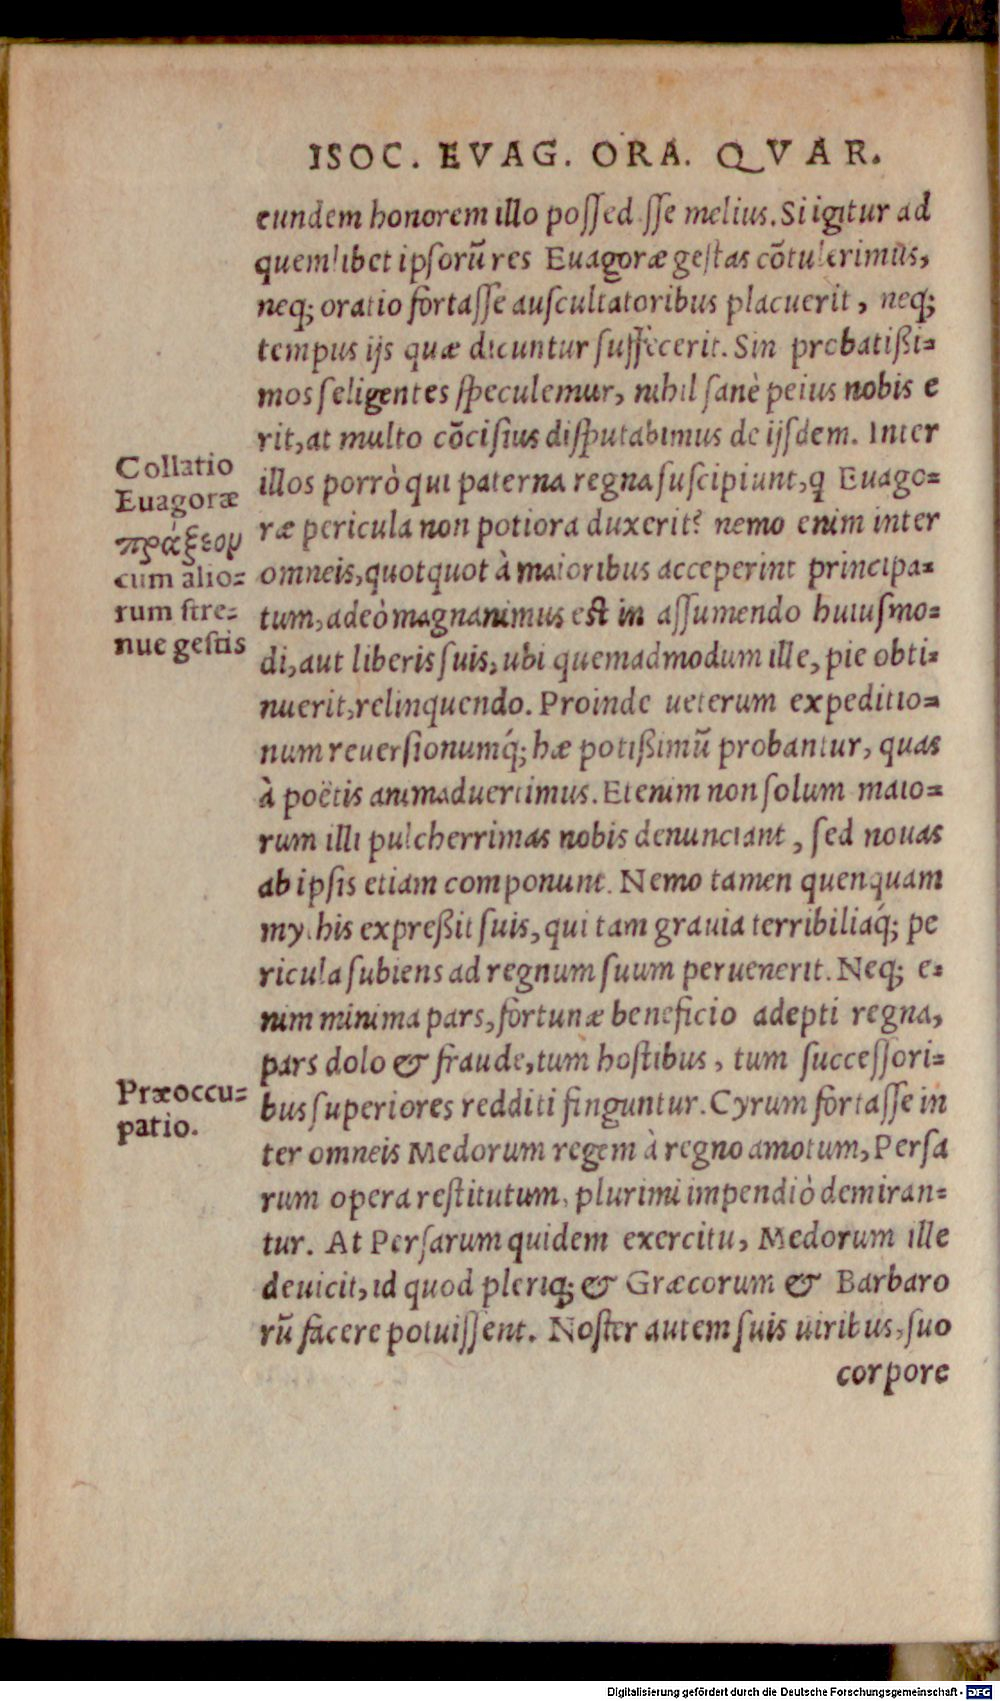 ISOC. EVAG. ORA. QVAR.
eundem honorem illo possed sse melius. Si igitur ad
quemlibet ipsorũ res Euagoræ gestas cõtulerimus,
neq; oratio fortasse auscultatoribus placuerit, neq;
tempus ijs quæ dicuntur suffecerit. Sin probatißi=
mos seligentes speculemur, nihil sanè peius nobis e
rit, at multo cõcisius disputabimus de ijsdem. Inter
illos porrò qui paterna regna suscipiunt, q Euago=
ræ pericula non potiora duxerit? nemo enim inter
omneis, quotquot à maioribus acceperint principa=
tum, adeò magnanimus est in assumendo huiusmo=
di, aut liberis suis, ubi quemadmodum ille, pie obti=
nuerit, relinquendo. Proinde ueterum expeditio=
num reuersionumq́; hæ potißimũ probantur, quas
à poëtis animaduertimus. Etenim non solum maio=
rum illi pulcherrimas nobis denunciant, sed nouas
ab ipsis etiam componunt. Nemo tamen quenquam
my his expreßit suis, qui tam grauia terribiliaq́; pe
ricula subiens ad regnum suum peruenerit. Neq; e=
nim minima pars, fortunæ beneficio adepti regna,
pars dolo & fraude, tum hostibus, tum successori=
bus superiores redditi finguntur. Cyrum fortasse in
ter omneis Medorum regem à regno amotum, Persa
rum opera restitutum, plurimi impendiò demiran=
tur. At Persarum quidem exercitu, Medorum ille
deuicit, id quod pleriq; & Græcorum & Barbaro
rũ facere potuissent. Noster autem suis uiribus, suo
corpore
Collatio
Euagoræ
πράξεων
cum alio=
rum stre=
nue gestis
Præoccu=
patio.
Digitalisierung gefördert durch die Deutsche Forschungsgemeinschaft - DFG